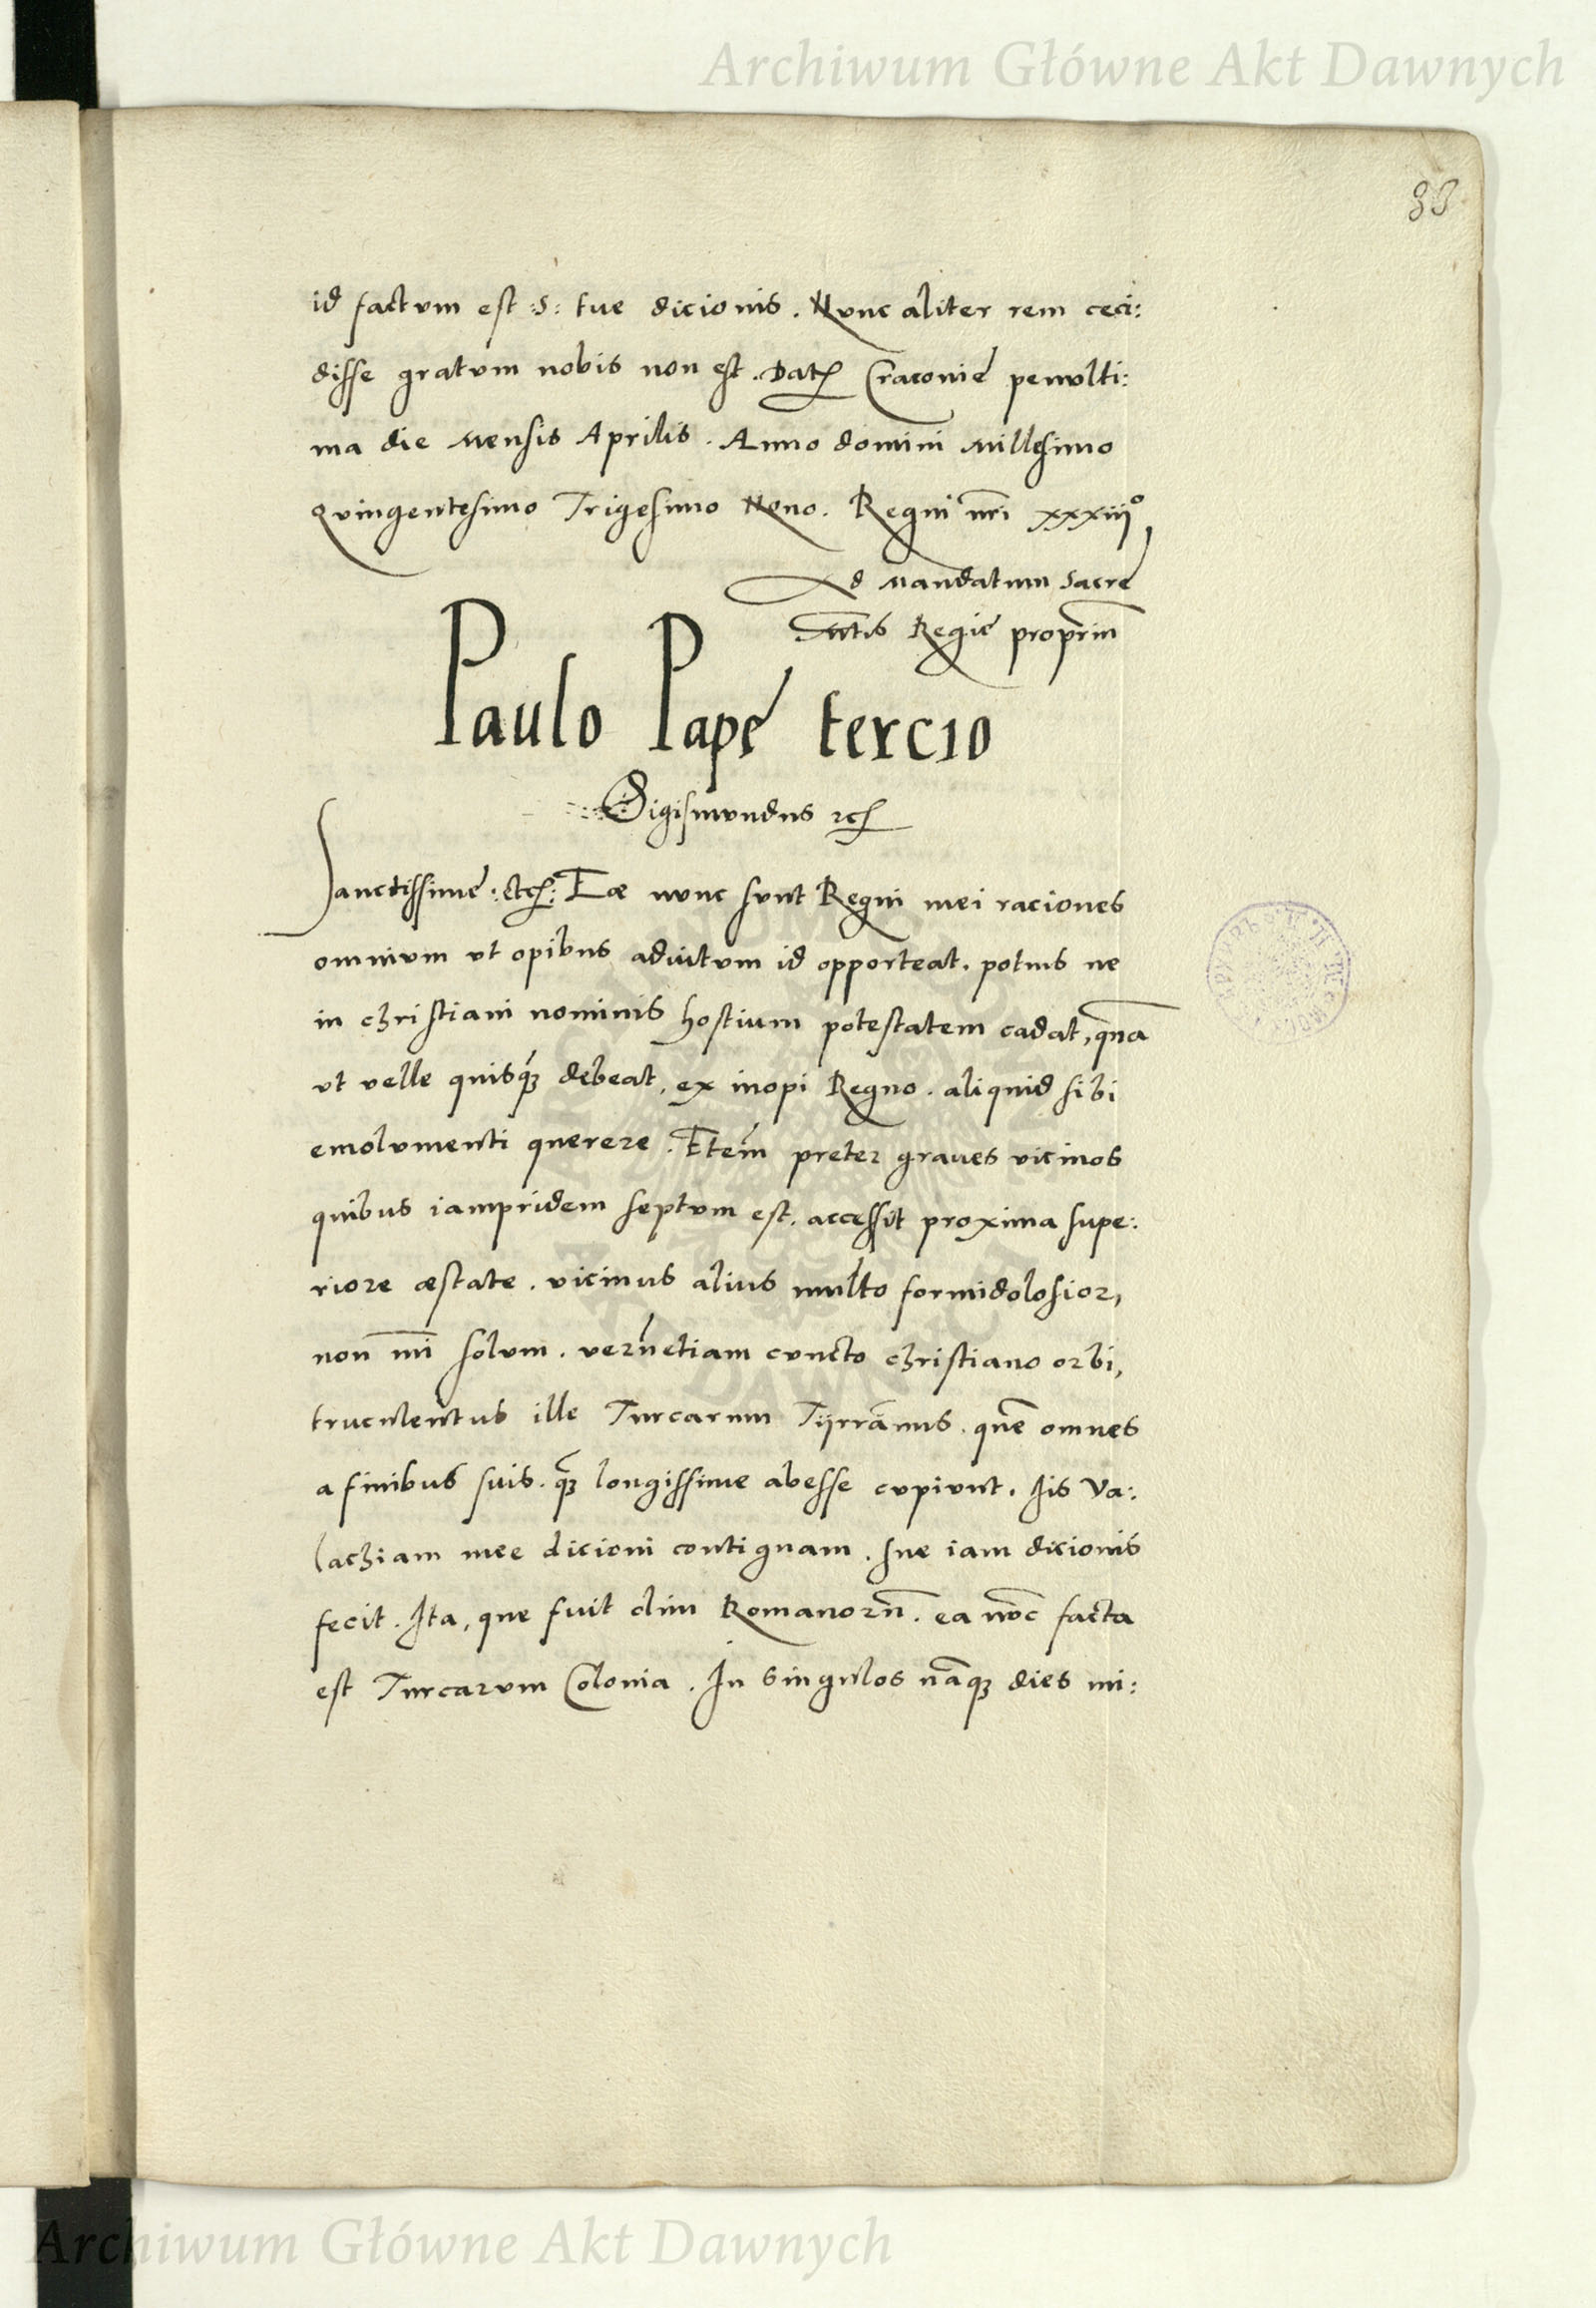 Archiwum Główne Akt Dawnych
38
id factvm est :S: tue dicionis. Nvnc aliter rem ceci:
disse gratvm nobis non est. Dat Cracovie penvlti:
ma die Mensis Aprilis. Anno domini Millesimo
Qvingentesimo Trigesimo Nono. Regni nr̄i xxxiii°
Ad Mandatum Sacre
Mtis Regie proprium
Paulo Pape tercio
Sigismvndus etc
Sanctissime: etc: Eæ nvnc svnt Regni mei raciones
omnivm vt opibus adiutvm id opporteat. potius ne
in christiani nominis hostium potestatem cadat, quā
vt velle quisq3 debeat, ex inopi Regno. aliquid sibi
emolvmenti querere. Eteīm preter graues vicinos
quibus iampridem septvm est. accessit proxima supe:
riore æstate. vicinus alius multo formidolosior,
non mī solvm. verūetiam cvncto christiano orbi,
trvculentus ille Turcarum Tÿrrānus. quē omnes
a finibus suis. q̄3 longissime abesse cvpivnt. Iis Va:
lachiam mee dicioni contiguam. sue iam dicionis
fecit. Ita, que fuit olim Romanorū. ea nv̄c facta
est Turcarvm Colonia. In singulos nāq3 dies mi:
Archiwum Główne Akt Dawnych